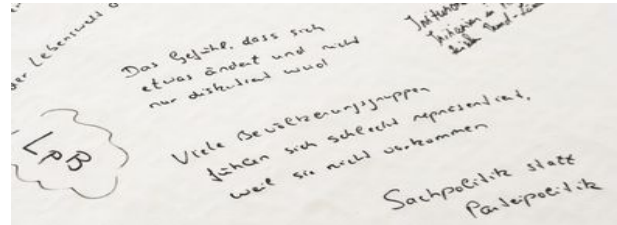 der Lebenswelt
Das Gefühl, dass sich
etwas ändert und nicht
nur diskutiert wird
LPB
Viele Bevölkerungsgruppen
fühlen sich schlecht repräsentiert,
weil sie nicht vorkommen
Sachpolitik statt
Parteipolitik